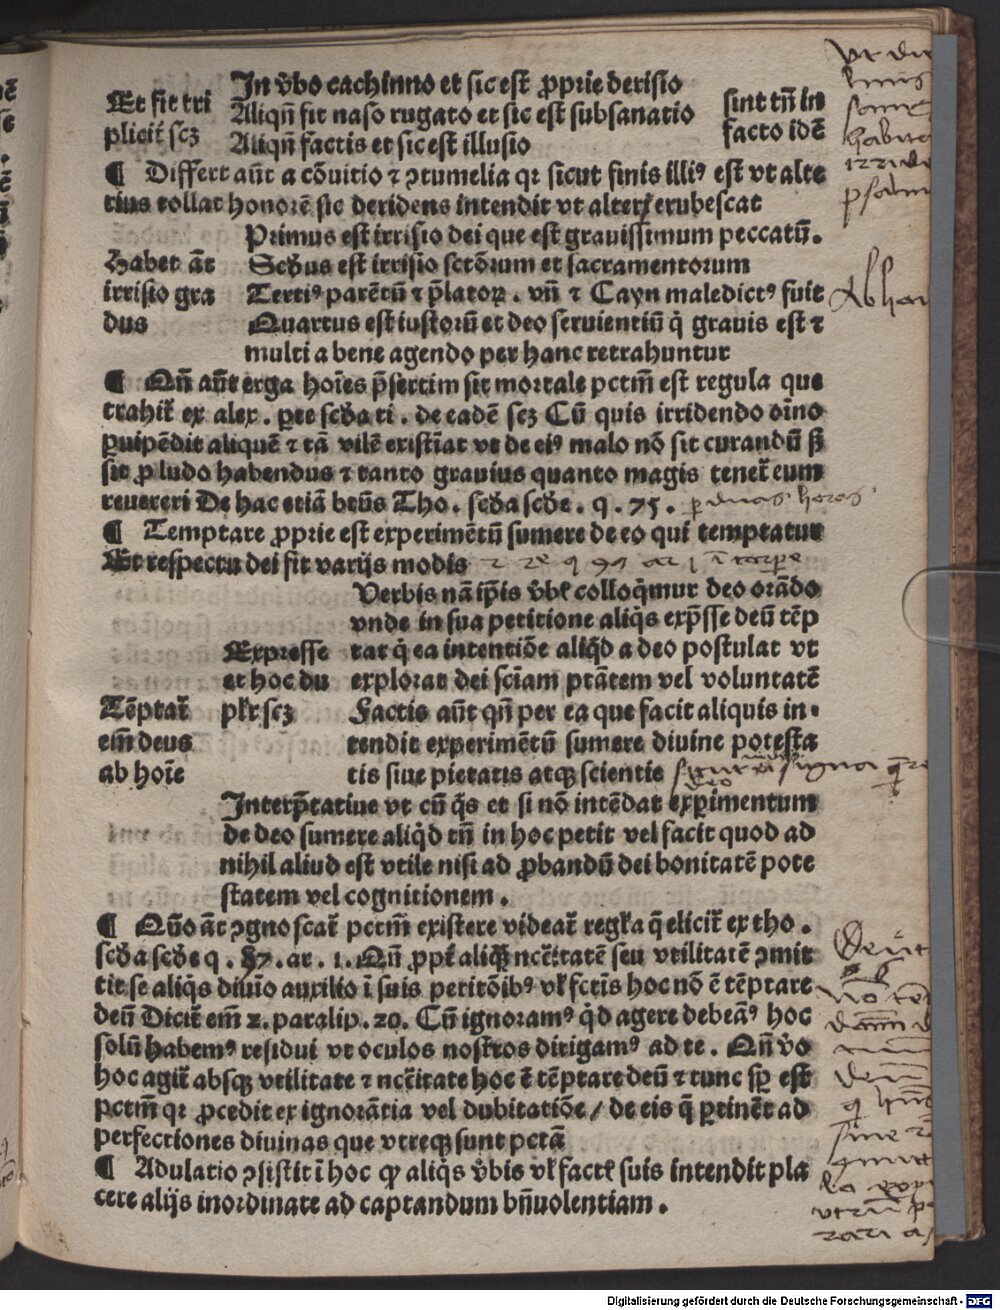 In v̄bo cachinno et sic est ꝓprie derisio
Et fit tri
plicit̄ scꝫ
Aliqn̄ fit naso rugato et sic est subsanatio
Aliqn̄ factis et sic est illusio
sint tn̄ in
facto idē
¶ Differt aūt a cōuitio ⁊ ↄtumelia qꝛ sicut finis illiꝰ est vt alte
rius tollat honorē sic deridens intendit vt alter erubescat
Habet āt
irrisio gra
dus
Primus est irrisio dei que est grauissimum peccatū.
Scd̄us est irrisio sctōrum et sacramentorum
Tertiꝰ parētū ⁊ p̄latoꝝ . vn̄ ⁊ Cayn maledictꝰ fuit
Quartus est iustorū et deo seruientiū q̇ grauis est ⁊
multi a bene agendo per hanc retrahuntur
¶ Qn̄ aūt erga hoīes p̄sertim sit mortale pctm̄ est regula que
trahit̄ ex alex . ꝑte scd̄a ti . de eadē scꝫ Cū quis irridendo oīno
ꝑuipēdit aliquē ⁊ tā vilē existīat vt de eiꝰ malo nō sit curandū sꝫ
sit ꝓ ludo habendus ⁊ tanto grauius quanto magis tenet̄ eum
reuereri De hac etiā btūs Tho . scd̄a scd̄e . q . 75 .
¶ Temptare ꝓprie est experimētū sumere de eo qui temptatur
Et respectu dei fit varijs modis
Tēptat̄
em̄ deus
ab hoīe
Expresse
et hoc du
plr̄ scꝫ
Verbis nā ip̄is vbꝭ colloq̇mur deo orādo
vnde in sua petitione aliq̇s exp̄sse deū tēp
tat q̇ ea intentiōe aliq̇d a deo postulat vt
explorat dei sciam̄ ptātem vel voluntatē
Factis aūt qn̄ per ea que facit aliquis in⸗
tendit experimētū sumere diuine potesta
tis siue pietatis atqꝫ scientie
Interp̄tatiue vt cū q̇s et si nō intēdat exꝑimentum
de deo sumere aliq̇d tn̄ in hoc petit vel facit quod ad
nihil aliud est vtile nisi ad ꝓbandū dei bonitatē pote
statem vel cognitionem .
¶ Qūo āt ↄgnoscat̄ pctm̄ existere videat̄ regl̄a q̄ elicit̄ ex tho .
scd̄a scd̄e q . 97 . ar . 1 . Qn̄ ꝓpt̄ aliquā nc̄citatē seu vtilitatē ↄmit
tit se aliq̇s diuīo auxilio ī suis petitōibꝰ vl̄ fctīs hoc nō ē tēptare
deū Dicit̄ em̄ 2. paralip . 20. Cū ignoramꝰ q̇d agere debeāꝰ hoc
solū habemꝰ residui vt oculos nostros dirigamꝰ ad te . Qn̄ v̄o
hoc agit̄ absqꝫ vtilitate ⁊ nc̄citate hoc ē tēptare deū ⁊ tunc sp̄ est
pctm̄ qꝛ ꝓcedit ex ignorātia vel dubitatiōe / de eis q̄ ꝑtinēt ad
perfectiones diuinas que vtreqꝫ sunt pctā
¶ Adulatio ↄsistit ī hoc ꝙ aliq̇s v̄bis vl̄ factꝭ suis intendit pla
cere alijs inordinate ad captandum bn̄uolentiam .
Digitalisierung gefördert durch die Deutsche Forschungsgemeinschaft - DFG